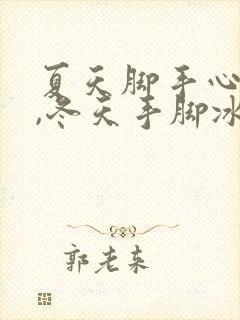 夏天脚手心
,冬天手脚冰
郭老来